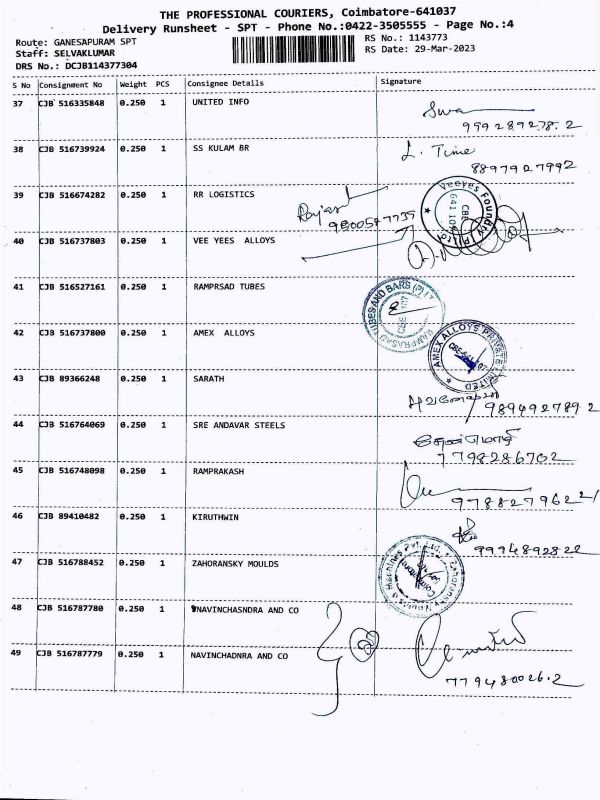 THE PROFESSIONAL COURIERS, Coimbatore-641037
Delivery Runsheet - SPT - Phone No.:0422-3505555 - Page No.:4
Route: GANESAPURAM SPT
RS No.: 1143773
Staff: SELVAKLUMAR
RS Date: 29-Mar-2023
DRS No.: DCJB114377304
S No Consignment No Weight PCS Consignee Details Signature
37 CJB 516335848 0.250 1 UNITED INFO
999289278.2
38 CJB 516739924 0.250 1 SS KULAM BR L. Time
8897927992
39 CJB 516674282 0.250 1 RR LOGISTICS
9500547735
40 CJB 516737803 0.250 1 VEE YEES ALLOYS
41 CJB 516527161 1 0.250 RAMPRSAD TUBES
42 CJB 516737800 0.250 1 AMEX ALLOYS
AMEX ALLOYS PRIVATE LIMITED
43 CJB 89366248 0.250 1 SARATH
9894927892
44 CJB 516764069 0.250 1 SRE ANDAVAR STEELS
7798286702
45 CJB 516748098 0.250 1 RAMPRAKASH
46 CJB 89410482 0.250 1 KIRUTHWIN
9994892822
47 CJB 516788452 0.250 1 ZAHORANSKY MOULDS
48 CJB 516787780 0.250 1 NAVINCHASNDRA AND CO
49 CJB 516787779 0.250 1 NAVINCHADNRA AND CO
779480026.2